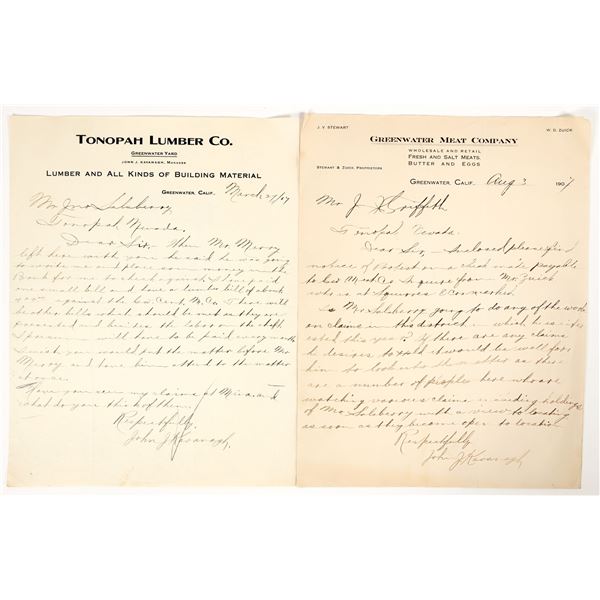 TONOPAH LUMBER CO.
GREENWATER YARD
JOHN J. KAVANAGH, MANAGER
LUMBER AND ALL KINDS OF BUILDING MATERIAL
GREENWATER, CALIF. March 27/07
Mr Jno Salsberry
Tonopah Nevada.
Dear Sir - When Mr. Merry
left here with you he said he was going
to and place some money in the
Bank for me to check against I have p'd
one small bill and have a lumber bill of about
against the Co. There will
be other bills which should be met as they are
presented and besides the labor on the shaft
I presume will have to be paid every month
I wish you would put the matter before Mr
Merry and have him attend to the matter
at once.
Have you seen my claims at and
what do you think of them.
Respectfully
John J Kavanagh
J. V. STEWART
W. D. ZUICK
GREENWATER MEAT COMPANY
WHOLESALE AND RETAIL
FRESH AND SALT MEATS
BUTTER AND EGGS
STEWART & ZUICK, PROPRIETORS
GREENWATER, CALIF. Aug 3 1907
Mr J Griffith
Tonopah Nevada.
Dear Sir, Inclosed please find
notice of Protest on a check made payable
to Meat Co I guess from Mr. Zuick
who is at
Is Mr. Salsberry going to do any of the work
on claims in this district which he is inter
ested this year? If there are any claims
he desires to hold it would be well for
him to look into the matter as there
are a number of people here who are
watching various claims including holdings
of Mr. Salsberry with a view to locating
as soon as they become open to location
Respectfully
John J Kavanagh